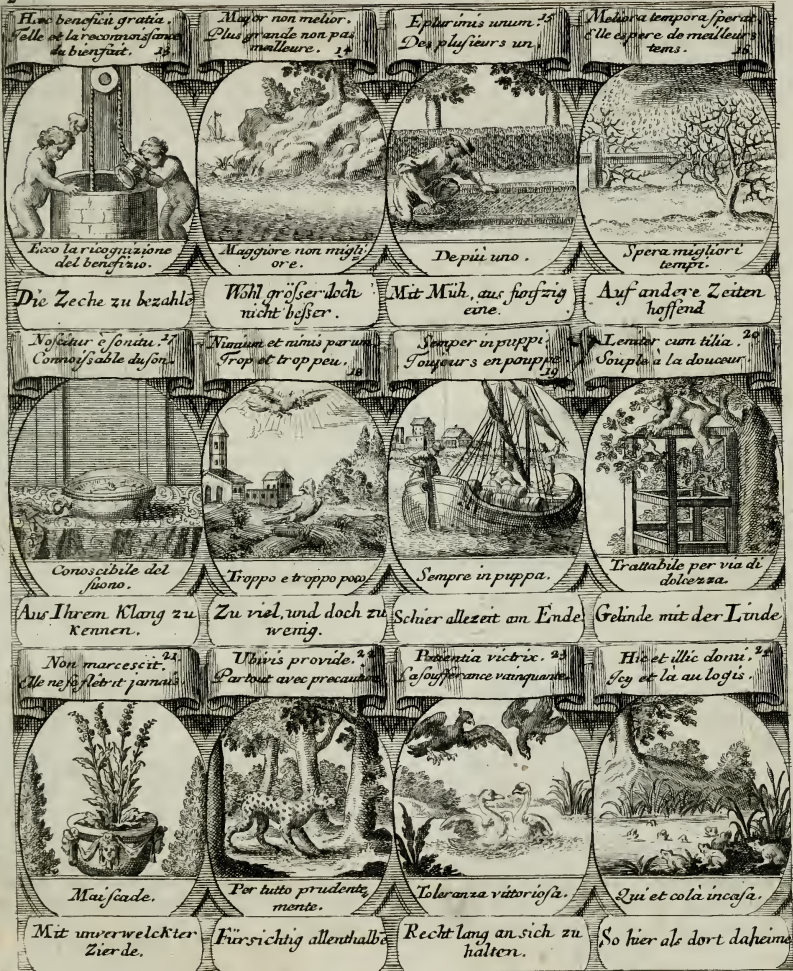 2
Haec beneficii gratia.
Telle est la reconnoissance
du bienfait. 13
Ecco la ricognizione
del benefizio.
Die Zeche zu bezahle
Major non melior.
Plus grande non pas
meilleure. 14
Maggiore non migli
ore.
Wohl größer doch
nicht besser.
E plurimis unum. 15
Des plusieurs un.
De più uno.
Mit Müh, aus funfzig
eine.
Meliora tempora sperat.
Elle espere de meilleurs
tems. 16
Spera migliori
tempi.
Auf andere Zeiten
hoffend
Noscitur è sonitu. 17
Connoissable du son.
Conoscibile del
suono.
Aus Ihrem Klang zu
Kennen.
Nimium et nimis parum.
Trop et trop peu. 18
Troppo e troppo poco
Zu viel, und doch zu
wenig.
Semper in puppi.
Toujours en pouppe
19
Sempre in puppa.
Schier allezeit am Ende
Leniter cum tilia. 20
Souple à la douceur.
Trattabile per via di
dolcezza.
Gelinde mit der Linde
Non marcescit. 21
Elle ne se flétrit jamais
Mai scade.
Mit unverwelckter
Zierde.
Ubivis provide. 22
Partout avec precaution
Per tutto prudente
mente.
Fürsichtig allenthalbe
Patientia victrix. 23
La soufferance vainquante.
Toleranza vittoriosa.
Recht lang an sich zu
halten.
Hic et illic domi. 24
Icy et là au logis.
Qui et colà in casa.
So hier als dort daheime